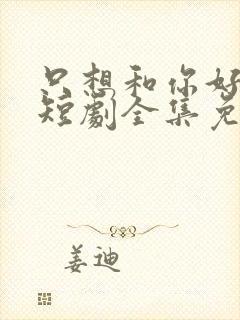 只想和你好
短劇全集免
姜迪